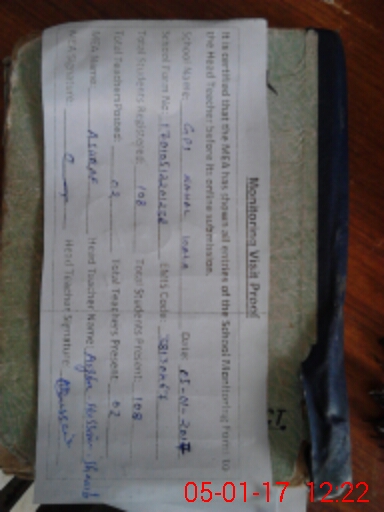 Monitoring Visit Proof
It is certified that the MEA has shown all entries of the School Monitoring Form to
the Head Teacher before its online submission.
School Name: GPS Date: 05-01-2017
School Form No: EMIS Code:
Total Students Registered: 108 Total Students Present: 108
Total Teachers Posted: 02 Total Teachers Present: 02
MEA Name: Asharaf Head Teacher Name: Hussain
MEA Signature: Head Teacher Signature:
05-01-17 12:22